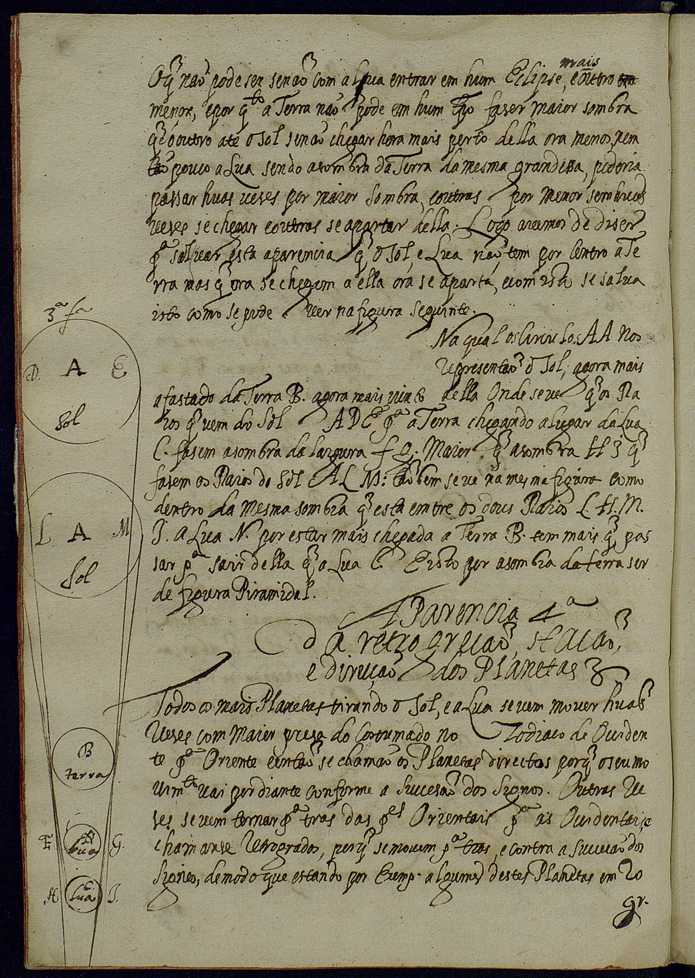 mais
O q̃ naõ pode ser senaõ com a Lua entrar em hum Eclipse, e outro
menor, e por q̃to a Terra naõ pode em hum tp̃o fazer maior sombra
q̃ o outro até o Sol senaõ chegar hora mais perto della ora menos, nem
taõ pouco a Lua sendo a sombra da Terra da mesma grandesa, poderia
passar huas veses por maior sombra, e outras por menor
veses se chegar e outras se apartar della. Logo avemos de diser
p.ª salvar esta aparencia q̃ o Sol, e Lua naõ tem por Centro a Te
rra mas q̃ ora se chegam a ella ora se aparta, e com isto se salva
isto como se pode ver na figura seguinte.
3ª fª
Na qual os Circulos A A nos
representaõ o Sol, agora mais
afastado da Terra B. agora mais della Onde se ve q̃ os Ra
ios q̃ vem do Sol A D E p.ª a Terra chegando a lugar da Lua
C. fasem a sombra da largura f g. Maior q̃ a sombra H I q̃
fasem os Raios do Sol A L M: taõbem se ve na mesma figura como
dentro da mesma sombra q̃ está entre os dous Raios L H. M.
I. a Lua N. por estar mais chegada a Terra B. tem mais q̃ pas
sar p.ª sair della q̃ a Lua C. E isto por a sombra da terra ser
de figura Piramidal.
D. A E
Sol
L A M
Sol
B
terra
F Lua G.
H C Lua I.
Aparencia 4ª
da retrogração, stação,
e direição dos Planetas
Todos os mais Planetas tirando o Sol, e a Lua se vem mover huas
Veses com Maior presa do Costumado no Zodiaco de Ouiden
te p.ª Oriente e entaõ se chamaõ os Planetas directos porq̃ o seu mo
vim.to vai por diante conforme a Sucesaõ dos Signos. Outras Ve
ses se vem tornar p.ª tras das p.tes Orientais p.ª as Ouidentais, e
chamanse Retrogrados, porq̃ se movem p.ª tras, e contra a Sucesaõ dos
Signos, de modo que estando por Exemp. algum destes Planetas em 20
gr.